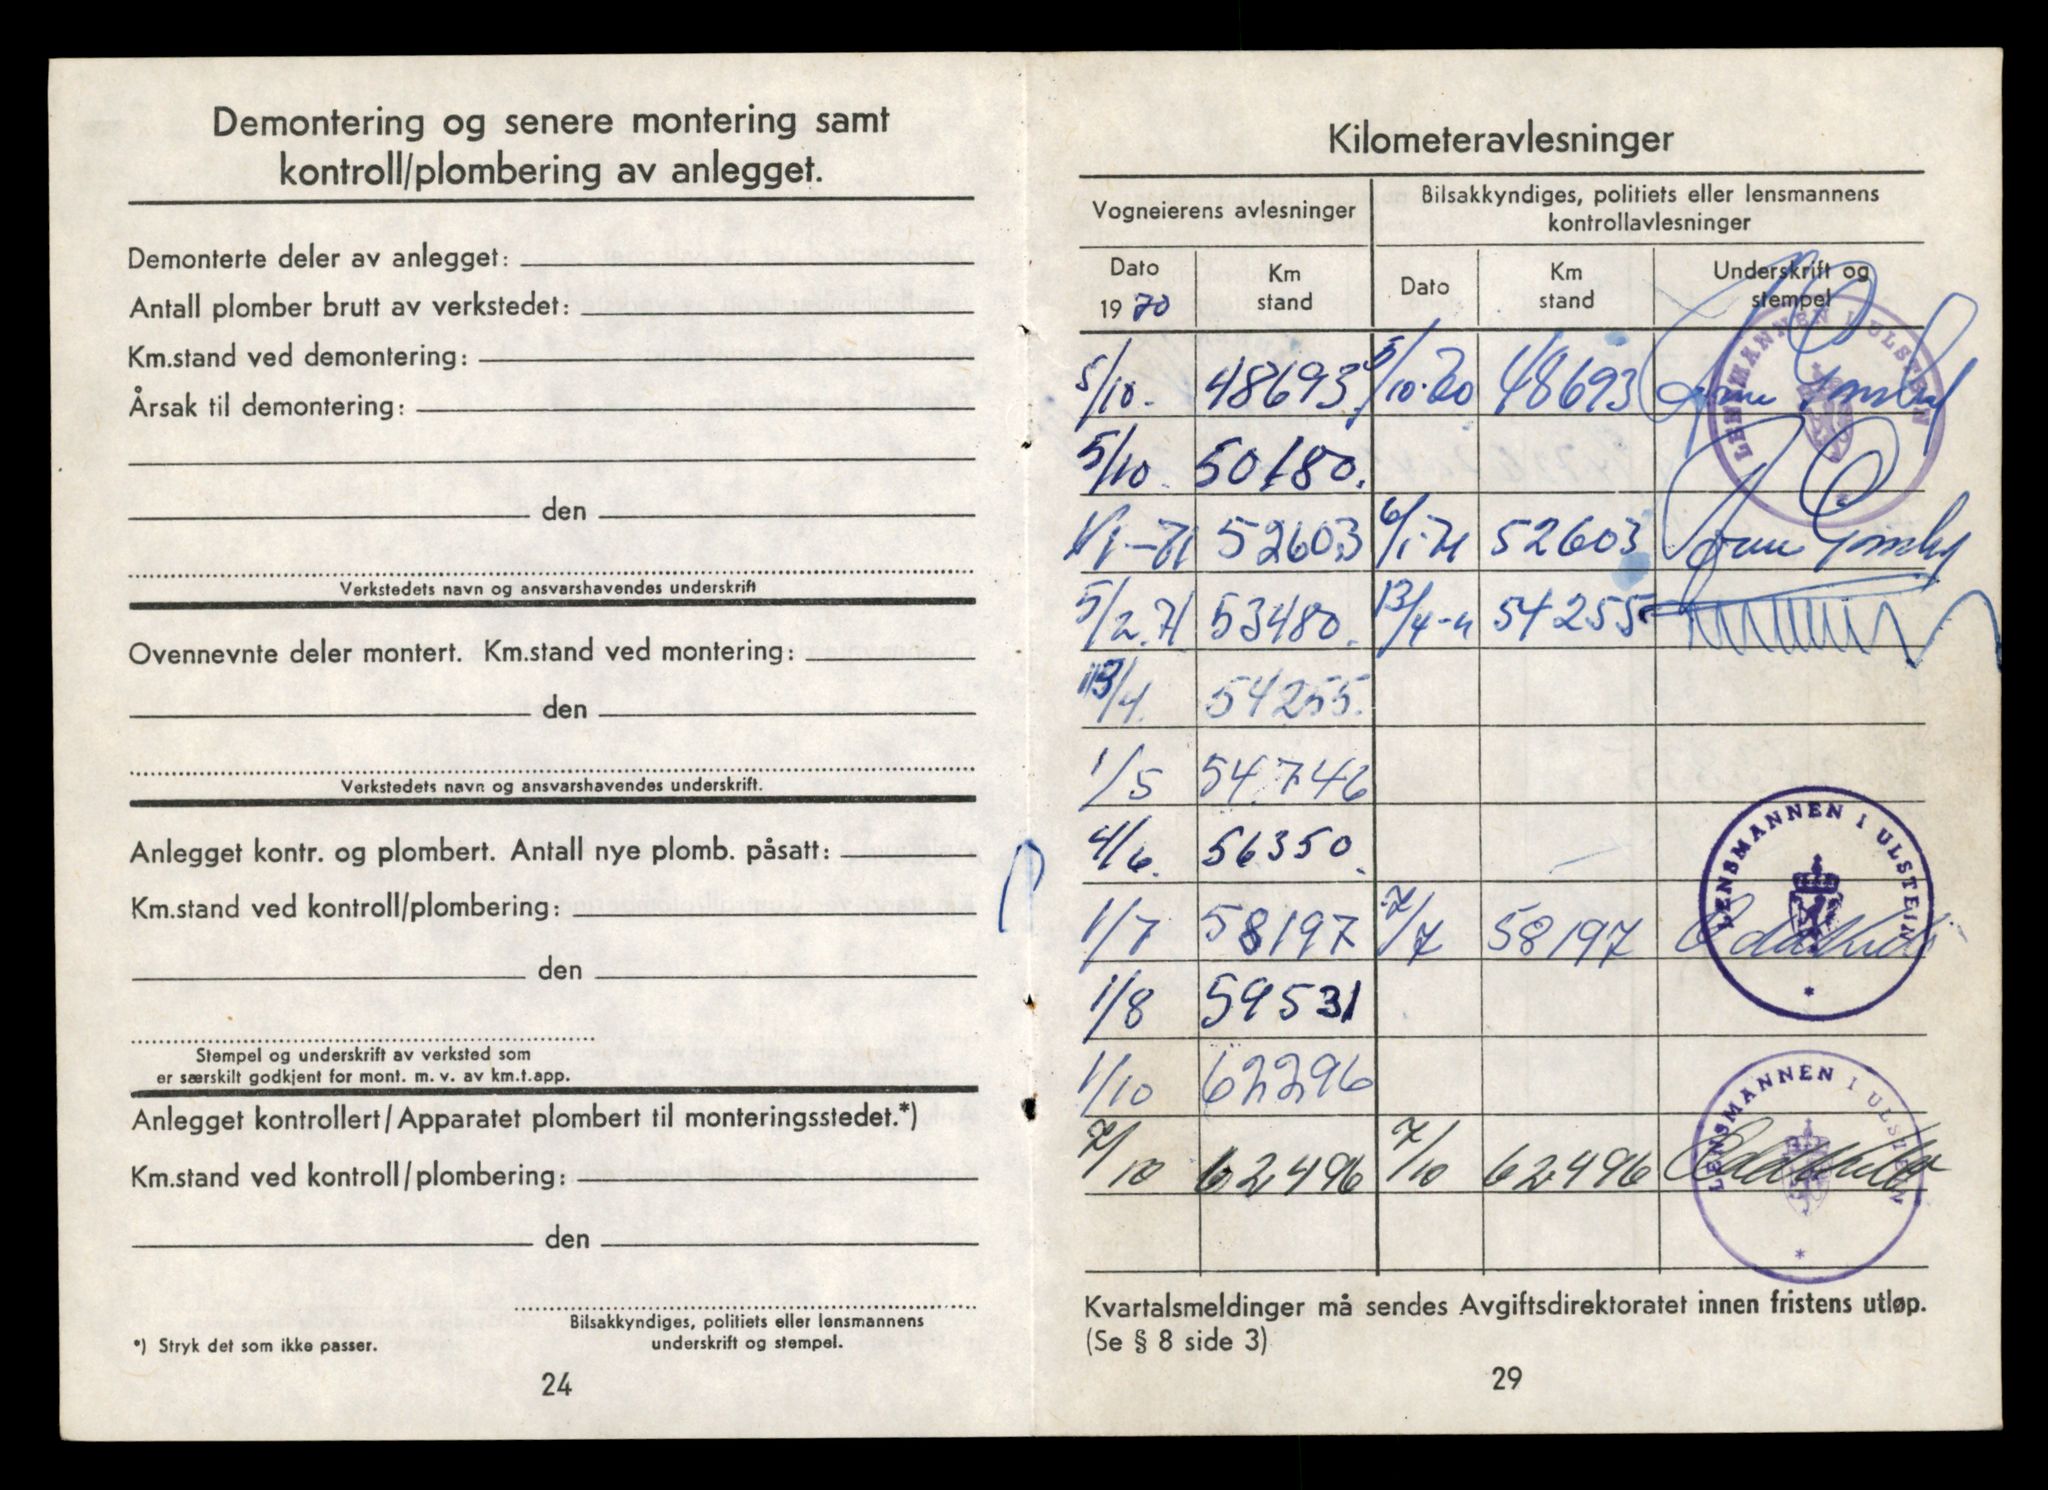 Demontering og senere montering samt
kontroll/plombering av anlegget.
Demonterte deler av anlegget:
Antall plomber brutt av verkstedet:
Km.stand ved demontering:
Årsak til demontering:
den
Verkstedets navn og ansvarshavendes underskrift
Ovennevnte deler montert. Km.stand ved montering:
den
Verkstedets navn og ansvarshavendes underskrift.
Anlegget kontr. og plombert. Antall nye plomb. påsatt:
Km.stand ved kontroll/plombering:
den
Stempel og underskrift av verksted som
er særskilt godkjent for mont. m. v. av km.t.app.
Anlegget kontrollert/Apparatet plombert til monteringsstedet.*)
Km.stand ved kontroll/plombering:
den
Bilsakkyndiges, politiets eller lensmannens
underskrift og stempel.
*) Stryk det som ikke passer.
24
Kilometeravlesninger
Vogneierens avlesninger
Bilsakkyndiges, politiets eller lensmannens
kontrollavlesninger
Dato
1970
Km
stand
Dato
Km
stand
Underskrift og
stempel
5/10. 48693. 5/10-70 48693
LENSMANNEN I ULSTEIN *
5/10. 50180.
1/1-71 52603 6/1-71 52603
5/2.71 53480. 13/4-71 54255
13/4. 54255.
1/5 54746
4/6. 56350.
1/7 58197 7/7 58197
LENSMANNEN I ULSTEIN *
1/8 59531
1/10 62296
7/10 62496 7/10 62496
LENSMANNEN I ULSTEIN *
Kvartalsmeldinger må sendes Avgiftsdirektoratet innen fristens utløp.
(Se § 8 side 3)
29